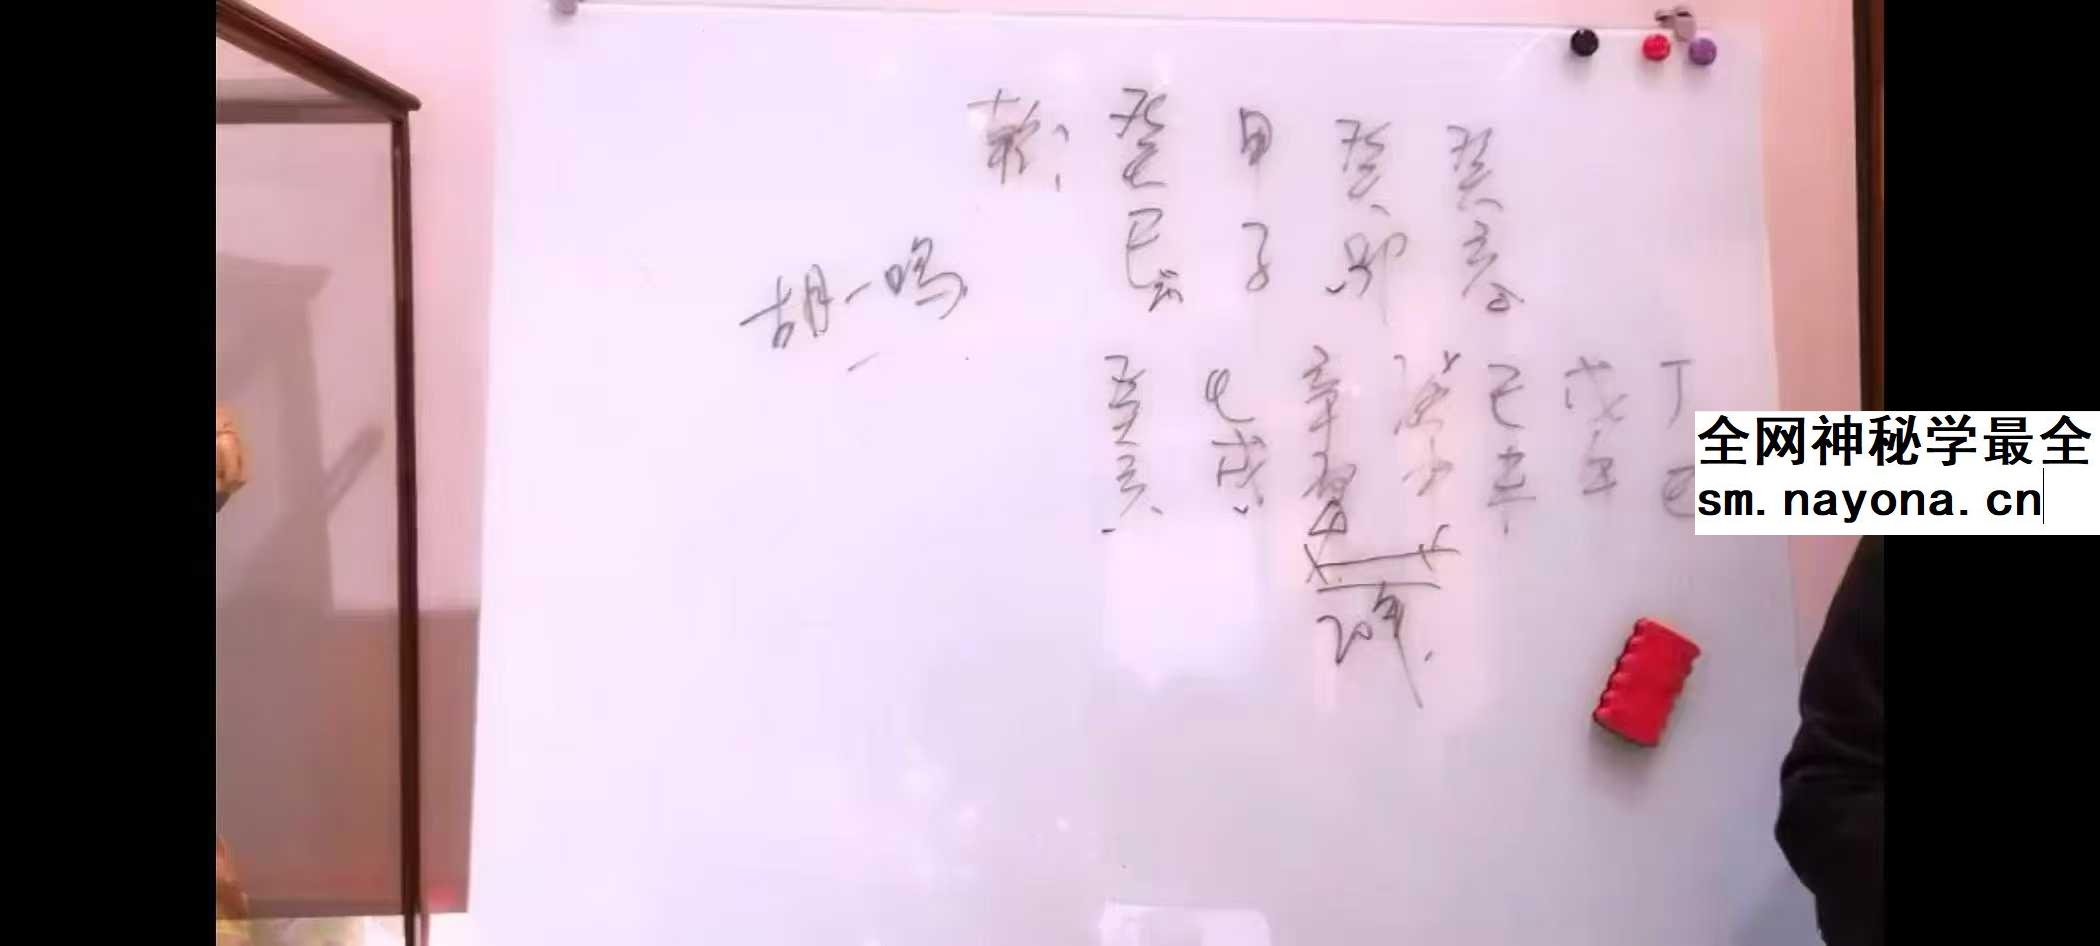 乾：癸 甲 癸 癸
巳 子 卯 亥
胡一鸣
癸 壬 辛 庚 己 戊 丁
亥 戌 酉 申 未 午 巳
20年
全网神秘学最全
sm.nayona.cn